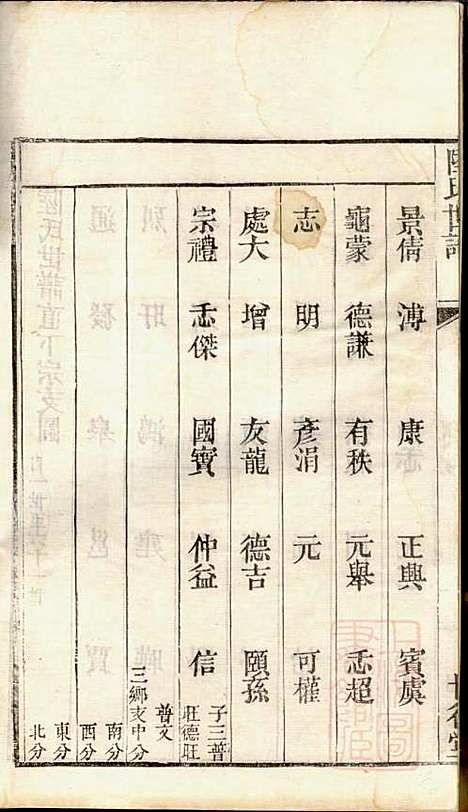 陸氏世譜
景倩 溥 康 正興 賓虞
龜蒙 德謙 有秩 元舉 忞超
志 明 彥涓 元 可權
處大 增 友龍 德吉 頤孫
宗禮 忞傑 國寶 仲益 信
子三普
旺德旺
普文
三鄉支中分
南分
西分
東分
北分
陸氏世譜直下宗支圖